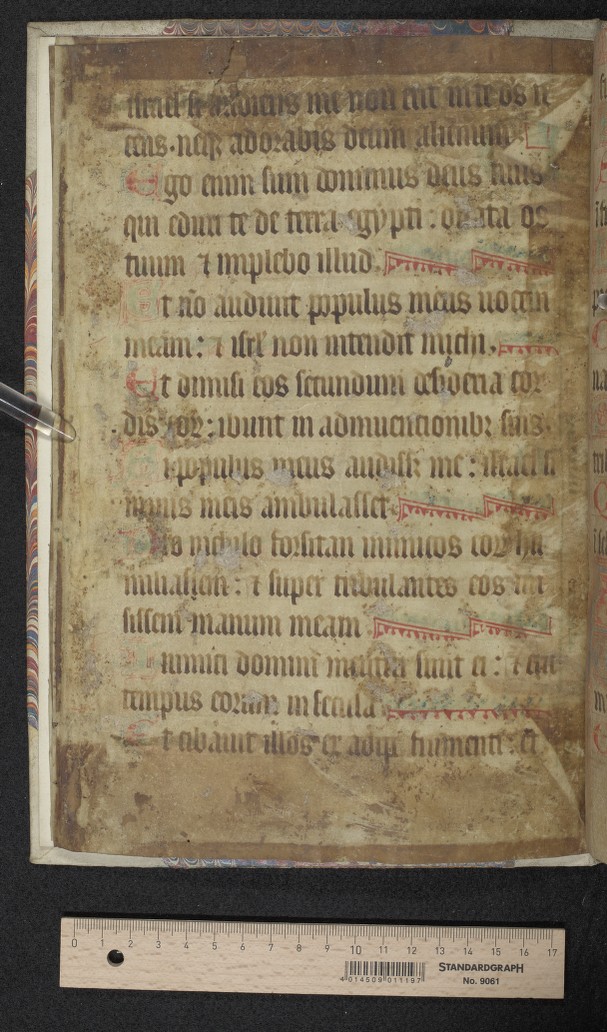 israel si audieris me non erit in te d̄s r
ecens. neq; adorabis deum alienum.
Ego enim sum dominus deus tuus
qui eduxi te de terra egypti : dilata os
tuum ⁊ implebo illud.
Et nō audiuit populus meus uocem
meam: ⁊ isr̄l non intendit michi.
Et dimisi eos secundum desideria cor
dis eoꝝ: ibunt in adinuentionibꝫ suis.
Si populus meus audiss; me : israel si
in uiis meis ambulasset.
Pro nichilo forsitan inimicos eoꝝ hu
miliassem : ⁊ super tribulantes eos mi
sissem manum meam
Inimici domini mentiti sunt ei : ⁊ erit
tempus eorum in secula
Et cibauit illos ex adipe frumenti : et
0 1 2 3 4 5 6 7 8 9 10 11 12 13 14 15 16 17
4 014509 011197
STANDARDGRAPH
No. 9061